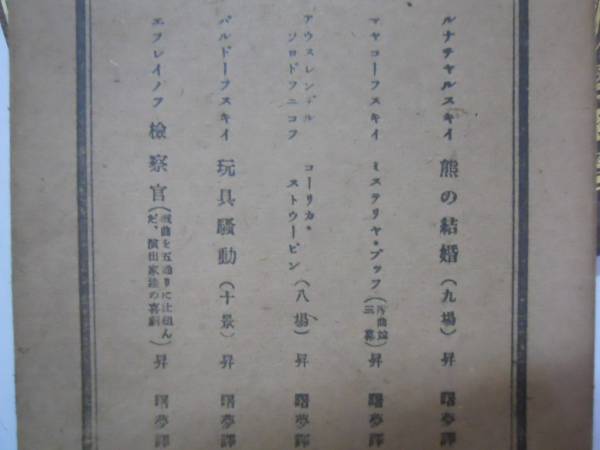 ルナチヤルスキイ 熊の結婚(九場)昇 曙夢譯
マヤコーフスキイ ミステリヤ・ブッフ(序曲竝三幕)昇 曙夢譯
アウスレンデル
ソロドフニコフ
コーリカ・
ストウーピン(八場)昇 曙夢譯
バルドーフスキイ 玩具騷動(十景)昇 曙夢譯
エフレイノフ 檢察官(戲曲を五通りに仕組んだ、演出家達の喜劇)昇 曙夢譯